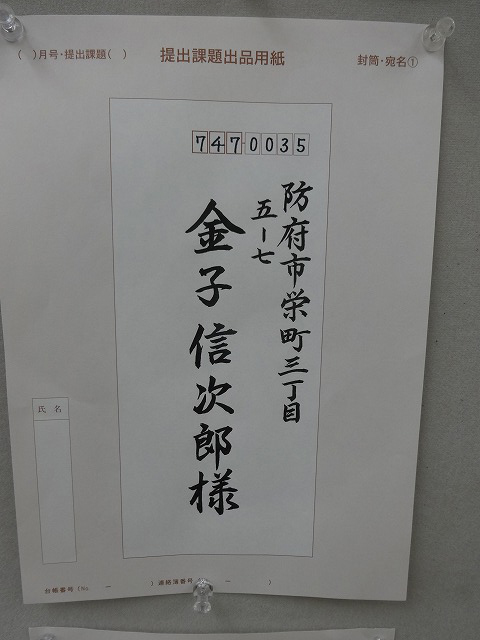 ( )月号・提出課題( )
提出課題出品用紙
封筒・宛名①
7470035
防府市栄町三丁目
五ー七
金子信次郎様
氏名
台帳番号(No. ー )連絡簿番号( ー )